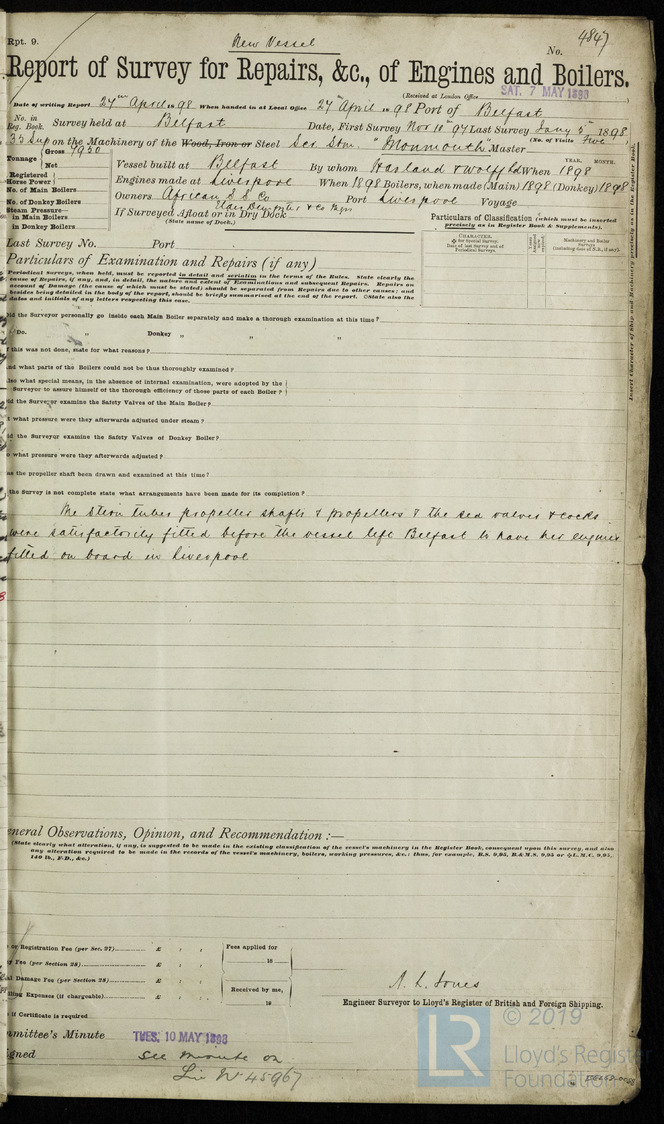 Rpt. 9.
New Vessel
No. 4847
Report of Survey for Repairs, &c., of Engines and Boilers.
(Received at London Office SAT. 7 MAY 1898)
Date of writing Report 27th April 98 When handed in at Local Office 27 April 98 Port of Belfast
No. in Reg. Book. Survey held at Belfast Date, First Survey Nov 10 97 Last Survey Jany 5th 1898
(No. of Visits Five)
33 Sup on the Machinery of the Wood, Iron or Steel Scr. Stm. "Monmouth" Master
Tonnage Gross Net
Vessel built at Belfast By whom Harland & Wolff Ld When 1898
YEAR. MONTH.
Registered Horse Power
Engines made at Liverpool When 1898 Boilers, when made (Main) 1898 (Donkey) 1898
No. of Main Boilers
No. of Donkey Boilers
Owners African S S Co Port Liverpool Voyage
Elder Dempster & Co Mgrs
Steam Pressure—
in Main Boilers
in Donkey Boilers
If Surveyed Afloat or in Dry Dock
(State name of Dock.)
Particulars of Classification (which must be inserted precisely as in Register Book & Supplements).
Last Survey No. Port
CHARACTER.
for Special Survey.
Date of last Survey and of Periodical Surveys.
Machinery and Boiler Surveys
(including date of N.B., if any).
Particulars of Examination and Repairs (if any)
Periodical Surveys, when held, must be reported in detail and seriatim in the terms of the Rules. State clearly the
cause of Repairs, if any, and, in detail, the nature and extent of Examinations and subsequent Repairs. Repairs on
account of Damage (the cause of which must be stated) should be separated from Repairs due to other causes; and
besides being detailed in the body of the report, should be briefly summarised at the end of the report. State also the
dates and initials of any letters respecting this case.
Insert Character of Ship and Machinery precisely as in the Register Book.
did the Surveyor personally go inside each Main Boiler separately and make a thorough examination at this time?
Do. „ Donkey „ „ „
if this was not done, state for what reasons?
and what parts of the Boilers could not be thus thoroughly examined?
also what special means, in the absence of internal examination, were adopted by the
Surveyor to assure himself of the thorough efficiency of those parts of each Boiler?
did the Surveyor examine the Safety Valves of the Main Boiler?
what pressure were they afterwards adjusted under steam?
did the Surveyor examine the Safety Valves of Donkey Boiler?
what pressure were they afterwards adjusted?
has the propeller shaft been drawn and examined at this time?
the Survey is not complete state what arrangements have been made for its completion?
The stern tubes propeller shafts & propellers & the sea valves & cocks
were satisfactorily fitted before the vessel left Belfast to have her engines
fitted on board in Liverpool
General Observations, Opinion, and Recommendation:—
(State clearly what alteration, if any, is suggested to be made in the existing classification of the vessel's machinery in the Register Book, consequent upon this survey, and also
any alteration required to be made in the records of the vessel's machinery, boilers, working pressures, &c.: thus, for example, B.S. 9,95, B.&M.S. 9,95 or L.M.C. 9,95,
140 lb., F.D., &c.)
or Registration Fee (per Sec. 27) £
Fee (per Section 28) £
Damage Fee (per Section 28) £
Travelling Expenses (if chargeable) £
Fees applied for
18
Received by me,
18
if Certificate is required
A. L. Jones
Engineer Surveyor to Lloyd's Register of British and Foreign Shipping.
Committee's Minute TUES. 10 MAY 1898
see minute on
Liv No 45967
© 2019
LR
Lloyd's Register
Foundation